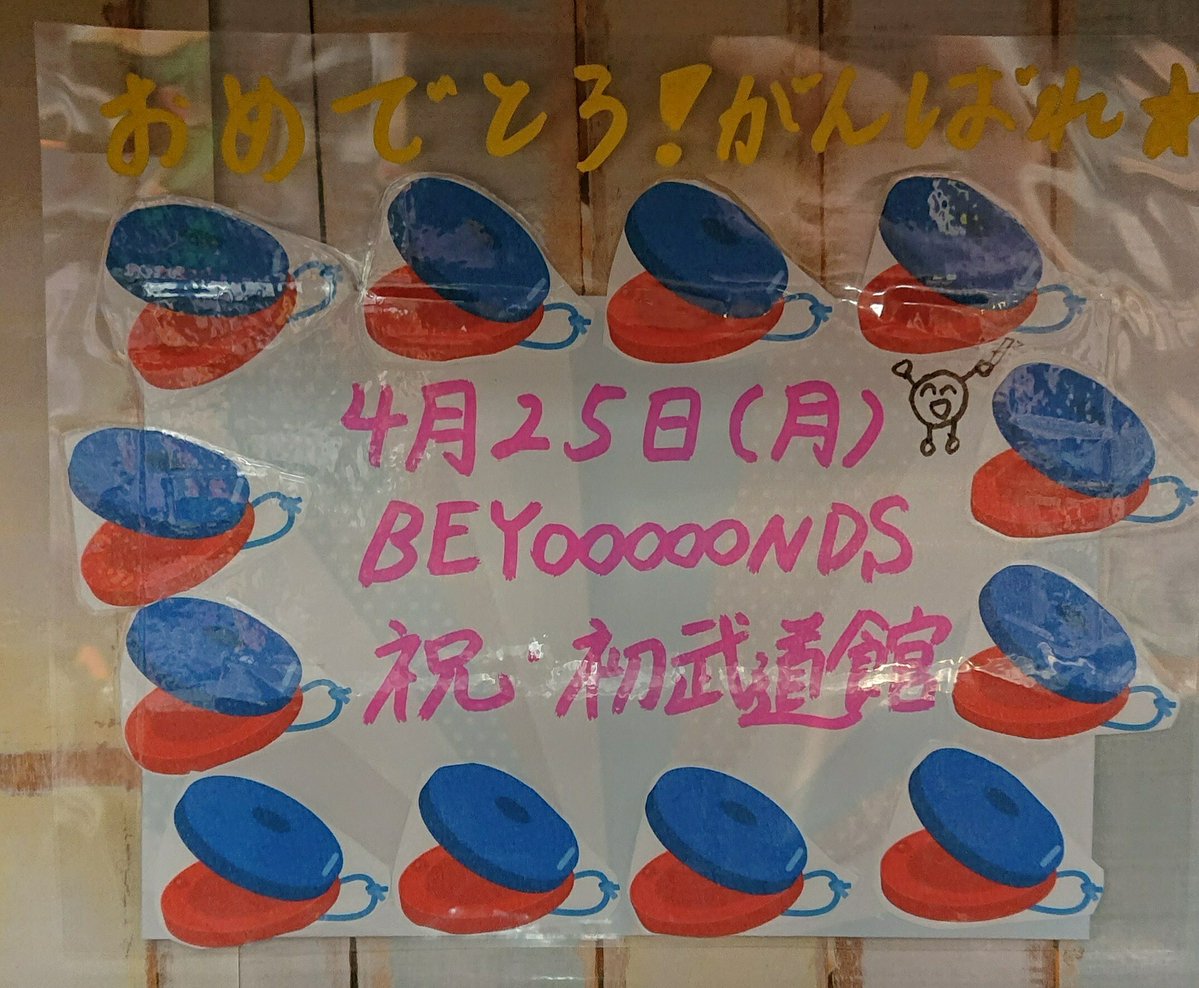 おめでとろ!がんばれ★
4月25日(月)
BEYOOOOONDS
祝・初武道館